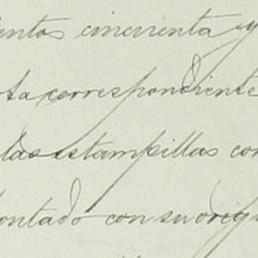 entos cincuenta y
ta correspondiente
las estampillas con
ontado con su orig